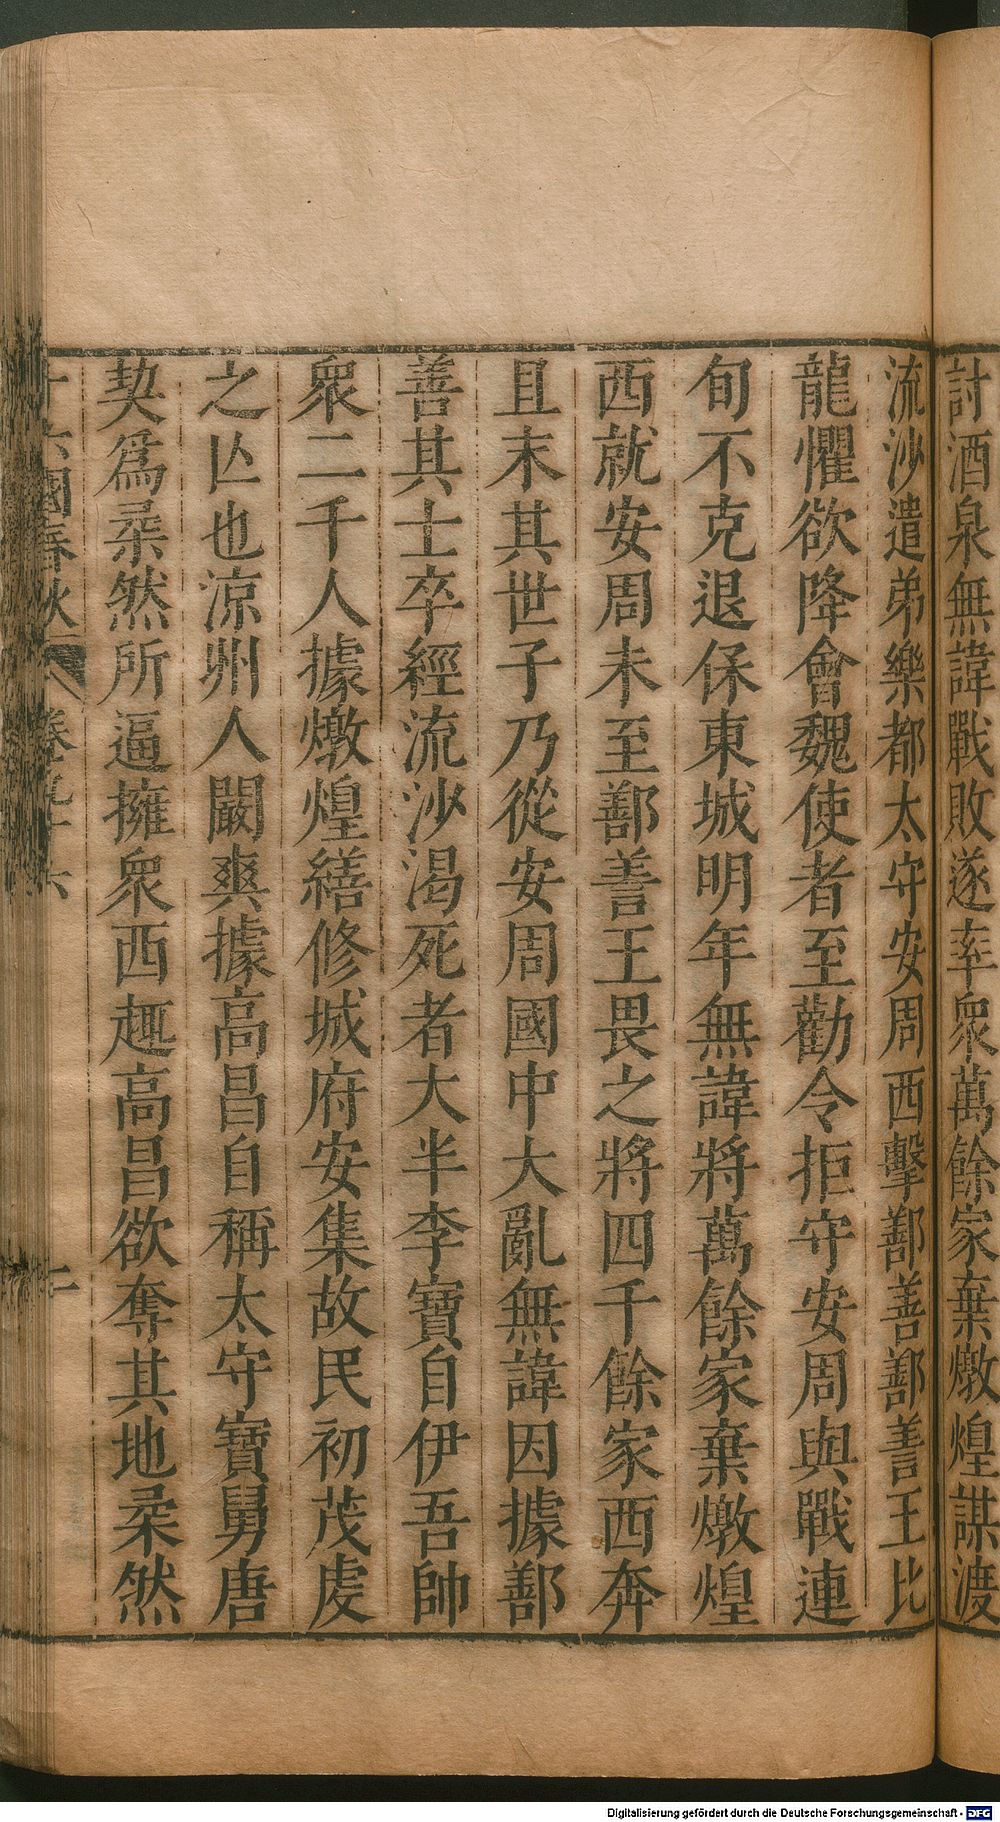 討酒泉無諱戰敗遂率衆萬餘家棄燉煌謀渡
流沙遣弟樂都太守安周西擊鄯善鄯善王比
龍懼欲降會魏使者至勸令拒守安周與戰連
旬不克退保東城明年無諱將萬餘家棄燉煌
西就安周未至鄯善王畏之將四千餘家西奔
且末其世子乃從安周國中大亂無諱因據鄯
善其士卒經流沙渴死者大半李寶自伊吾帥
衆二千人據燉煌繕修城府安集故民初茂虔
之亾也涼州人闞爽據高昌自稱太守寶舅唐
契爲柔然所逼擁衆西趣高昌欲奪其地柔然
十六國春秋 卷九十六
Digitalisierung gefördert durch die Deutsche Forschungsgemeinschaft - DFG